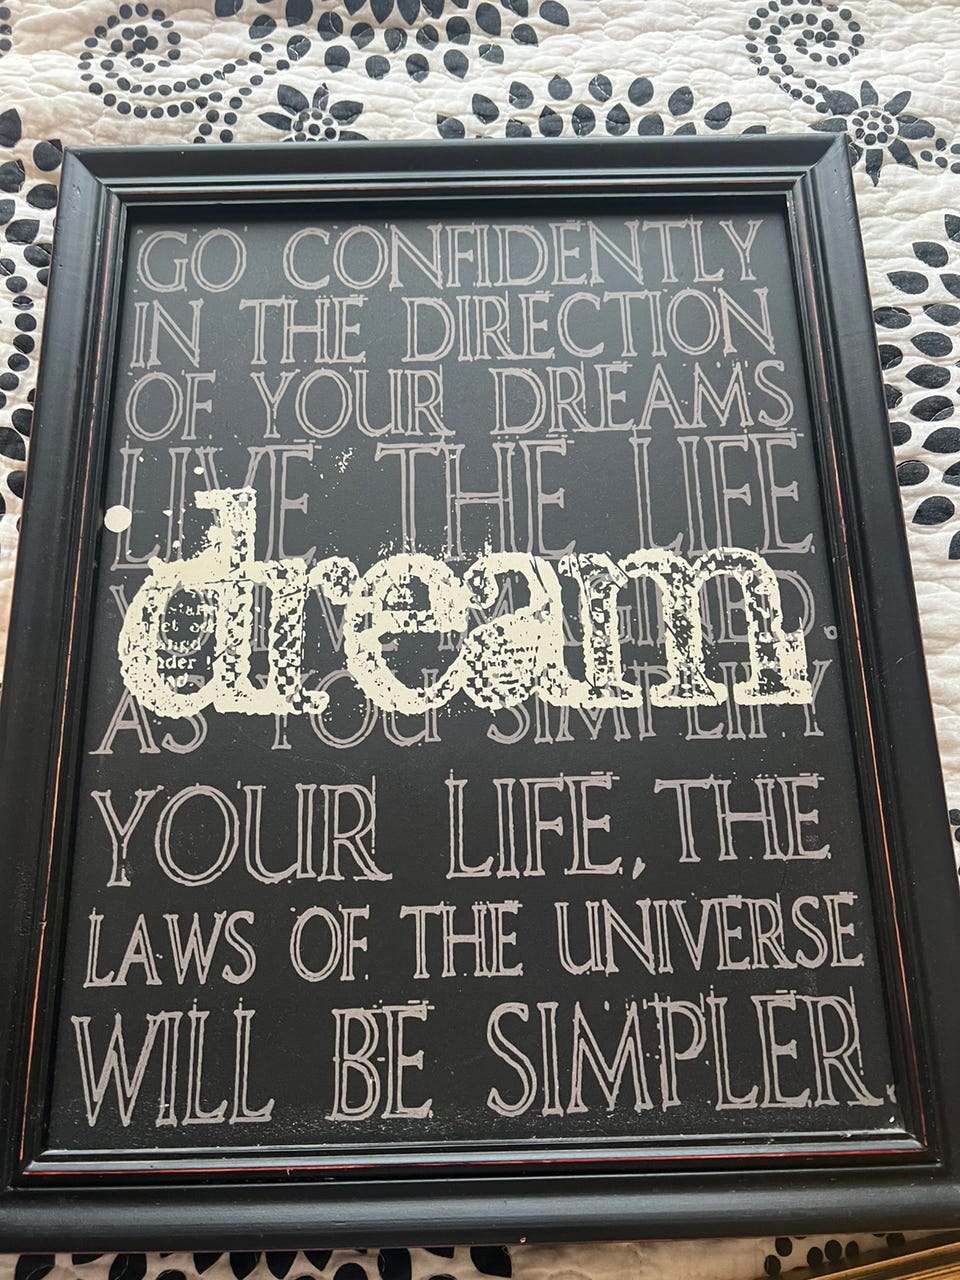 GO CONFIDENTLY
IN THE DIRECTION
OF YOUR DREAMS
LIVE THE LIFE
dream
YOU'VE IMAGINED.
AS YOU SIMPLIFY
YOUR LIFE, THE
LAWS OF THE UNIVERSE
WILL BE SIMPLER.